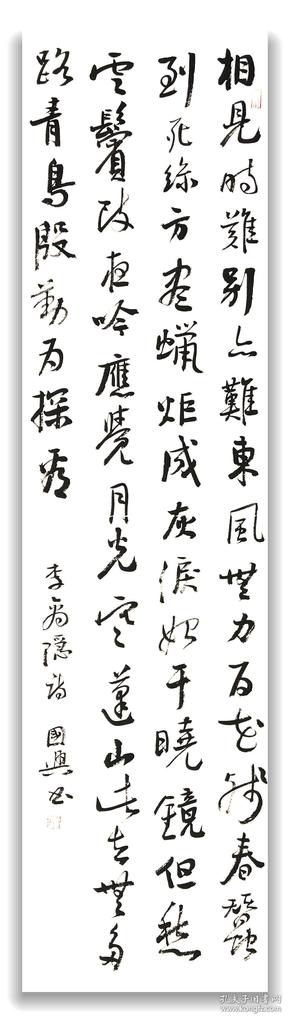 相見時難別亦難東風無力百花殘春蠶
到死絲方盡蠟炬成灰淚始干曉鏡但愁
雲鬢改夜吟應覺月光寒蓬山此去無多
路青鳥殷勤为探看
李商隱詩 國興书
孔夫子旧书网
www.kongfz.com